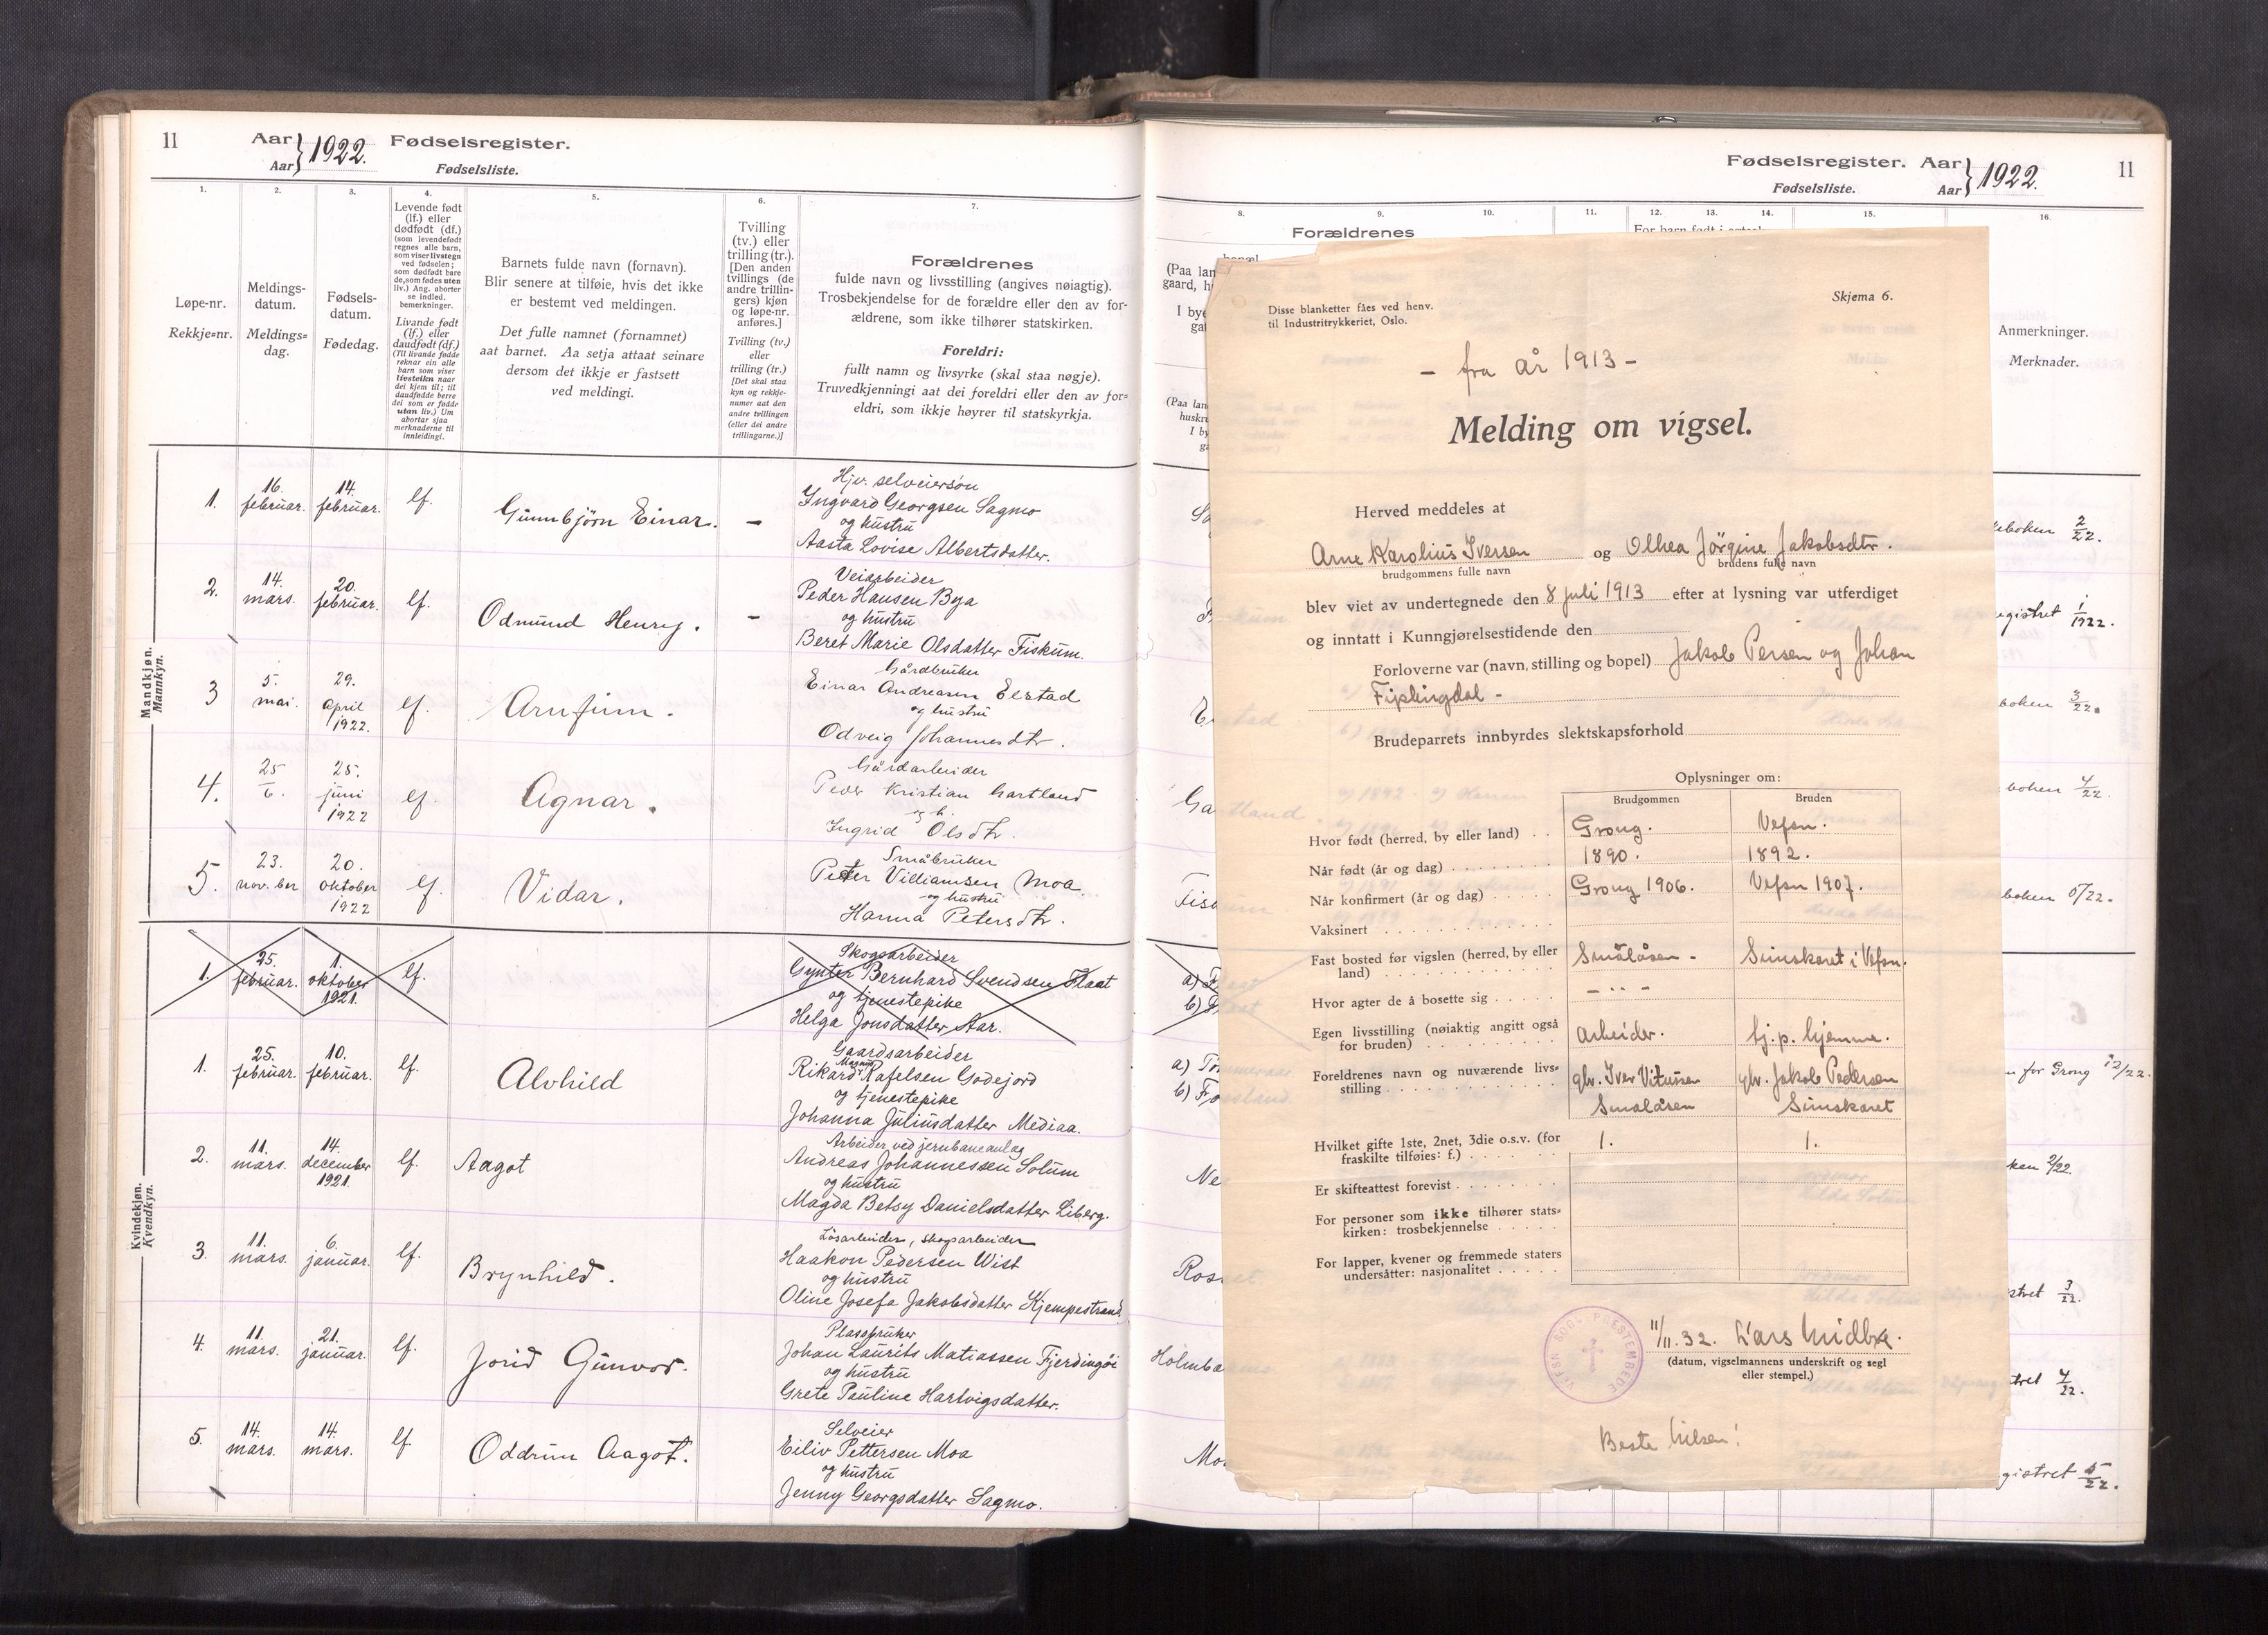 11
Aar
Aar
1922.
Fødselsregister.
Fødselsliste.
1.
2.
3.
4.
5.
6.
7.
Løpe-nr.
Rekkje=nr.
Meldings-
datum.
Meldings=
dag.
Fødsels-
datum.
Fødedag.
Levende født
(lf.) eller
dødfødt (df.)
(som levendefødt
regnes alle barn,
som viser livstegn
ved fødselen;
som dødfødt bare
de, som fødes uten
liv.) Ang. aborter
se indled.
bemerkninger.
Livande født
(lf.) eller
daudfødt (df.)
(Til livande fødde
reknar ein alle
barn som viser
livsteikn naar
dei kjem til; til
daudfødde berre
dei som er fødde
utan liv.) Um
abortar sjaa
merknaderne til
innleidingi.
Barnets fulde navn (fornavn).
Blir senere at tilføie, hvis det ikke
er bestemt ved meldingen.
Det fulle namnet (fornamnet)
aat barnet. Aa setja attaat seinare
dersom det ikkje er fastsett
ved meldingi.
Tvilling
(tv.) eller
trilling (tr.).
[Den anden
tvillings (de
andre trillin-
gers) kjøn
og løpe-nr.
anføres.]
Tvilling (tv.)
eller
trilling (tr.)
[Det skal staa
kyn og rekkje-
numer aat den
andre tvillingen
(eller dei andre
trillingarne.)]
Forældrenes
fulde navn og livsstilling (angives nøiagtig).
Trosbekjendelse for de forældre eller den av for-
ældrene, som ikke tilhører statskirken.
Foreldri:
fullt namn og livsyrke (skal staa nøgje).
Truvedkjenningi aat dei foreldri eller den av for=
eldri, som ikkje høyrer til statskyrkja.
Mandkjøn.
Mannkyn.
1. 16. februar. 14. februar. lf. Gunnbjørn Einar. –
Hjv. selveiersøn
Ingvard Georgsen Sagmo
og hustru
Aasta Lovise Albertsdatter.
2. 14. mars. 20. februar. lf. Odmund Henry. –
Veiarbeider
Peder Hansen Bya
og hustru
Beret Marie Olsdatter Fiskum.
3 5. mai. 29. april 1922. lf. Arnfinn.
Gårdbruker
Einar Andreasen Elstad
og hustru
Odveig Johannesdtr.
4. 25/6. 25. juni 1922 lf. Agnar.
Gårdarbeider
Peder Kristian Gartland
og h.
Ingrid Olsdtr.
5. 23. nov. ber 20. oktober 1922 lf. Vidar.
Småbruker
Peter Villiamsen Moa.
og hustru
Hanna Petersdtr.
Kvindekjøn.
Kvendkyn.
1. 25. februar. 1. oktober 1921. lf.
Skogsarbeider
Gynter Bernhard Svendsen Flaat
og tjenestepike
Helga Jonsdatter Aar.
1. 25. februar. 10. februar. lf. Alvhild
Gaardsarbeider
Magnus
Rikard Rafelsen Godejord
og tjenestepike
Johanna Juliusdatter Mediaa.
2. 11. mars. 14. december 1921. lf. Aagot
Arbeider ved jernbaneanlag
Andreas Johannessen Solum
og hustru
Magda Betsy Danielsdatter Liberg.
3. 11. mars. 6. januar. lf. Brynhild.
Løsarbeider, skogsarbeider
Haakon Pedersen Wist
og hustru
Oline Josefa Jakobsdatter Kjempestrand.
4. 11. mars. 21. januar. lf. Jorid Gunvor.
Plassbruker
Johan Laurits Matiassen Fjerdingøi
og hustru
Grete Pauline Hartvigsdatter.
5. 14. mars. 14. mars. lf. Oddrun Aagot.
Selveier
Eiliv Pettersen Moa
og hustru
Jenny Georgsdatter Sagmo.
Fødselsregister. Aar
Fødselsliste. Aar
1922.
11
8.
9.
10.
11.
12.
13.
14.
15.
16.
Forældrenes
(Paa lan
gaard, h
I bye
ga
(Paa lan
huskr
I by
ga
Anmerkninger.
Merknader.
boken 2/22.
gistret 1/1922.
boken 3/22.
boken 4/22.
boken 5/22.
for Grong 12/22.
ken 2/22.
stret 3/22.
tret 4/22.
gistret 5/22.
Ga
a)
b)
a)
b)
Ne
Ros
Mo
Disse blanketter fåes ved henv.
til Industritrykkeriet, Oslo.
Skjema 6.
– fra år 1913 –
Melding om vigsel.
Herved meddeles at
Arne Karolius Iversen og Olhea Jörgine Jakobsdtr.
brudgommens fulle navn
brudens fulle navn
blev viet av undertegnede den 8 juli 1913 efter at lysning var utferdiget
og inntatt i Kunngjørelsestidende den
Forloverne var (navn, stilling og bopel) Jakob Persen og Johan
Fiplingdal -
Brudeparrets innbyrdes slektskapsforhold
Oplysninger om:
Brudgommen
Bruden
Hvor født (herred, by eller land) Grong. Vefsn.
Når født (år og dag) 1890. 1892.
Når konfirmert (år og dag) Grong 1906. Vefsn 1907.
Vaksinert
Fast bosted før vigslen (herred, by eller
land) Smålåsen - Simskaret i Vefsn.
Hvor agter de å bosette sig – " –
Egen livsstilling (nøiaktig angitt også
for bruden) arbeider. tj. p. hjemme.
Foreldrenes navn og nuværende livs=
stilling gbr. Iver Vitussen gbr. Jakob Pedersen
Smalåsen Simskaret
Hvilket gifte 1ste, 2net, 3die o.s.v. (for
fraskilte tilføies: f.) 1. 1.
Er skifteattest forevist
For personer som ikke tilhører stats=
kirken: trosbekjennelse
For lapper, kvener og fremmede staters
undersåtter: nasjonalitet
VEFSN SOGNEPRESTEMBEDE
11/11. 32. Lars Midbøe.
(datum, vigselmannens underskrift og segl
eller stempel.)
Beste hilsen!